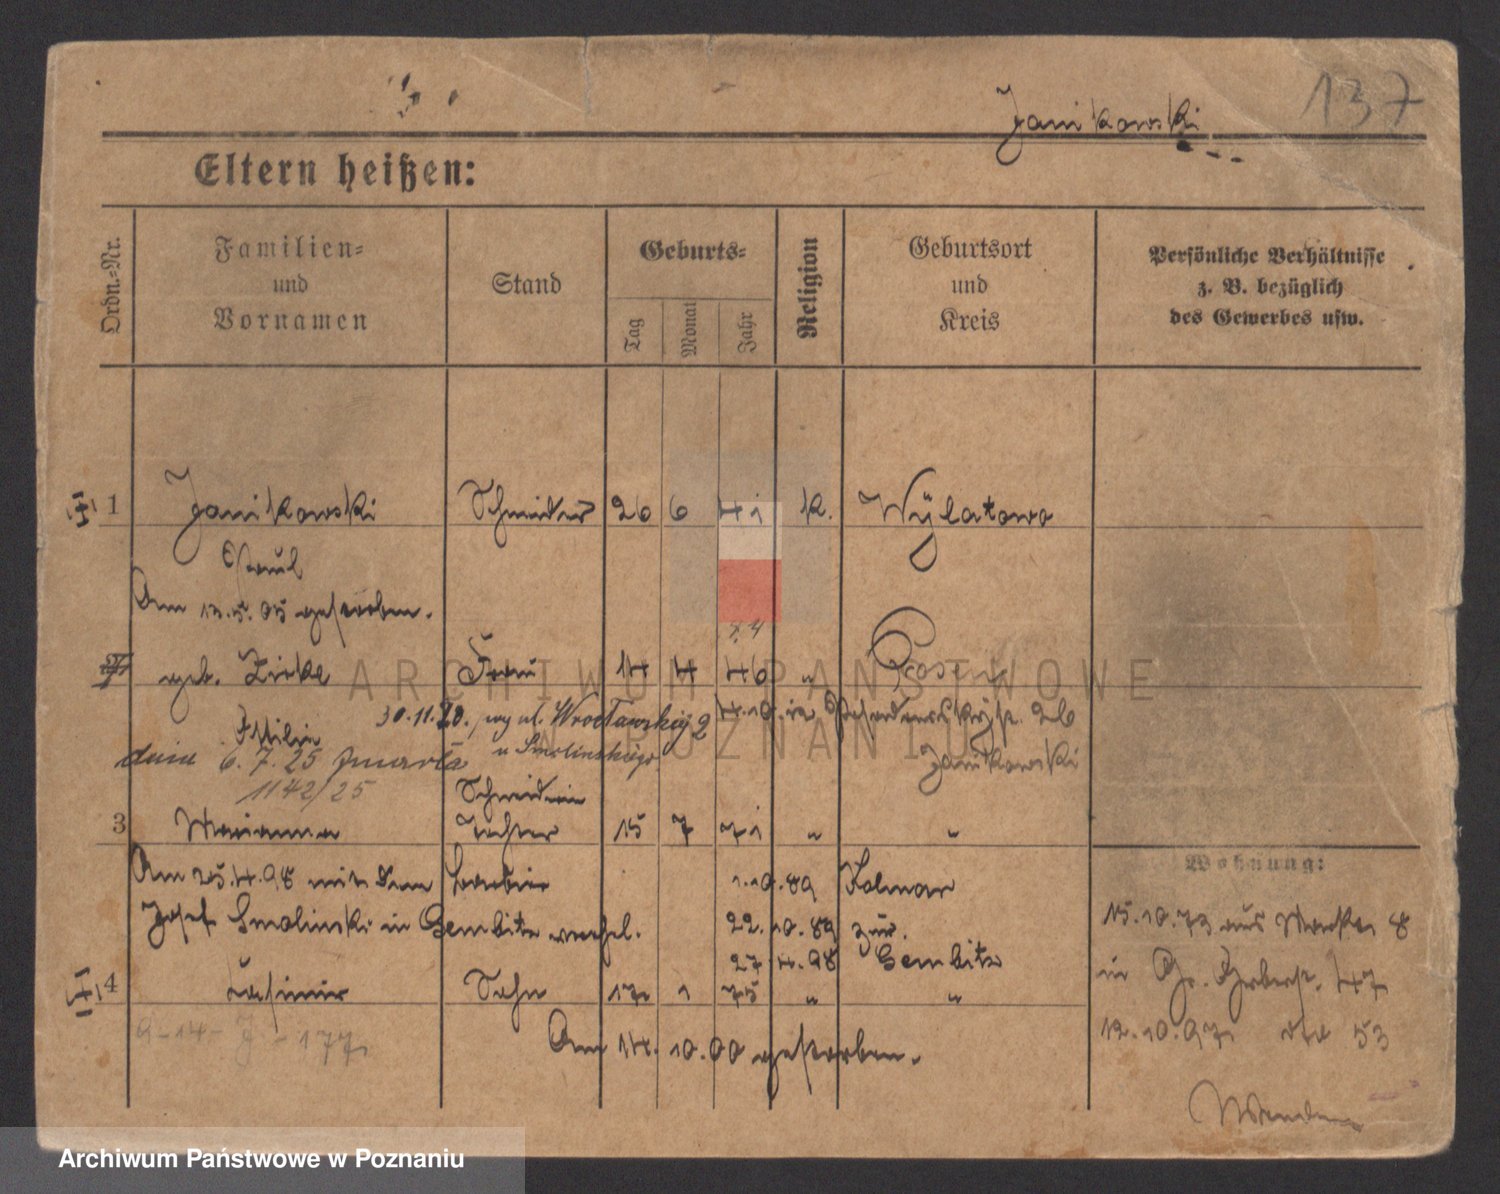 137
Janikowski
Eltern heißen:
Ordn.-Nr.
Familien-
und
Vornamen
Stand
Geburts-
Tag
Monat
Jahr
Religion
Geburtsort
und
Kreis
Persönliche Verhältnisse
z. B. bezüglich
des Gewerbes usw.
1 Janikowski Schneider 26 6 41 k. Wÿlatowo
Paul
Am 12.5.05 gestorben.
geb. Zirke Frau 14 4 46 " Posen
30.11.20. przy ul. Wrocławskiej 2
u Smolinskiego
dnia 6.7.25 zmarła
1142/25
Janikowski
Schneiderin
3 Marianna Tochter 15 7 71 " "
Am 25.4.98 mit dem 1.10.89 Kolmar
Josef Smolinski in Gembitz verehel. 22.10.89 zur.
27.4.98 Gembitz
4 Casimir Sohn 17 1 75 " "
Am 14.10.00 gestorben.
9-14-J-177
Wohnung:
15.10.73 aus Markt 8
in Gr. Gerberst. 47
12.10.97 53
Wenden
ARCHIWUM PAŃSTWOWE
W POZNANIU
Archiwum Państwowe w Poznaniu